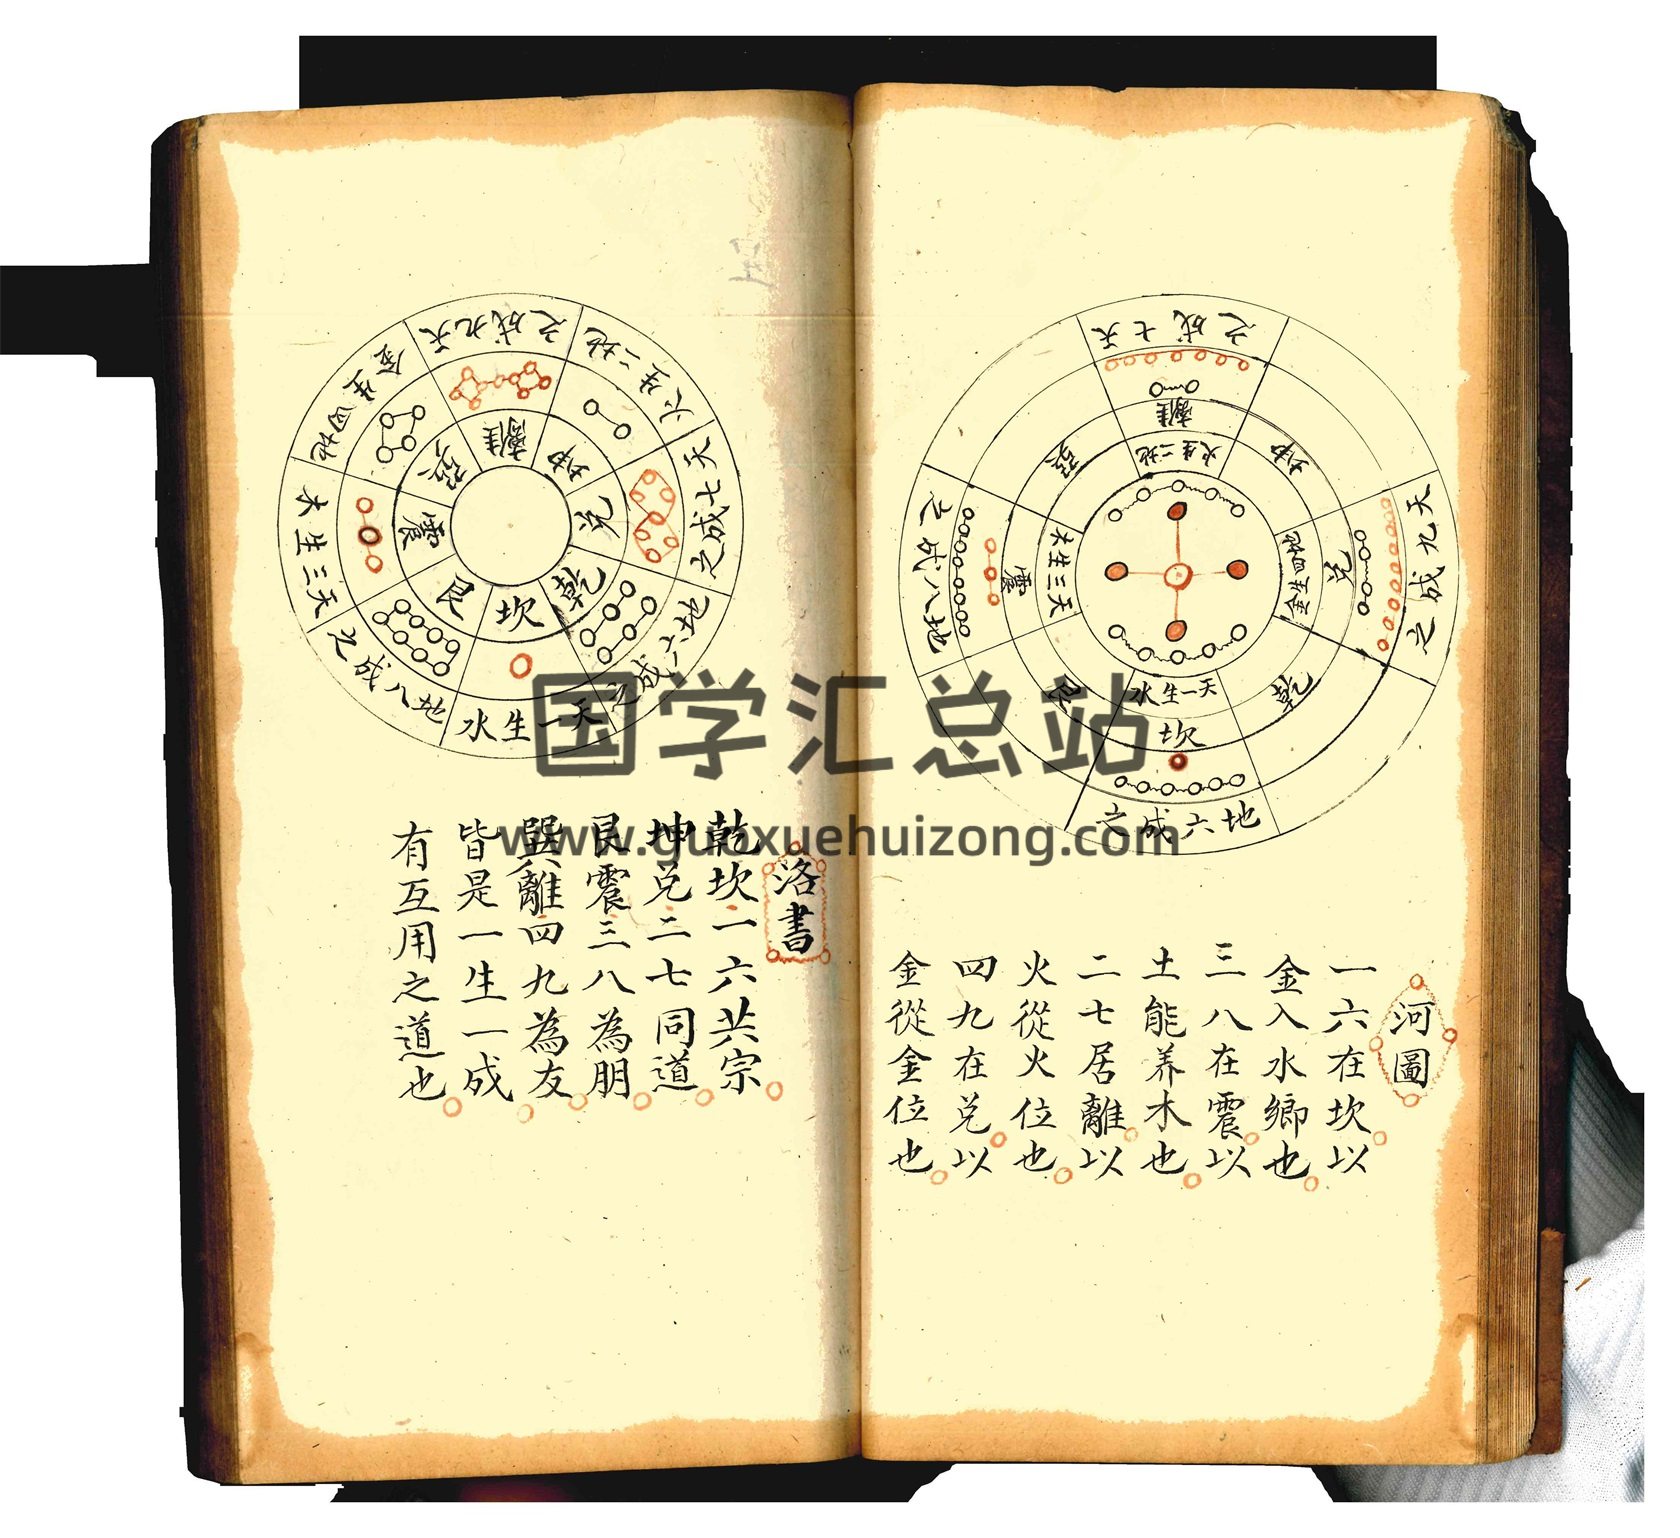 河圖
一六在坎以
金入水鄉也
三八在震以
土能养木也
二七居離以
火從火位也
四九在兑以
金從金位也
天七成之
離
地二生火
坤
天九成之
兑
乾
天一生水
坎
地六成之
艮
地八成之
震
天三生木
洛書
乾坎一六共宗
坤兑二七同道
艮震三八為朋
巽離四九為友
皆是一生一成
有互用之道也
天九成之
離
地二生火
坤
天七成之
兑
地六成之
乾
天一生水
坎
地八成之
艮
天三生木
震
地四生金
国学汇总站
www.guoxuehuizong.com